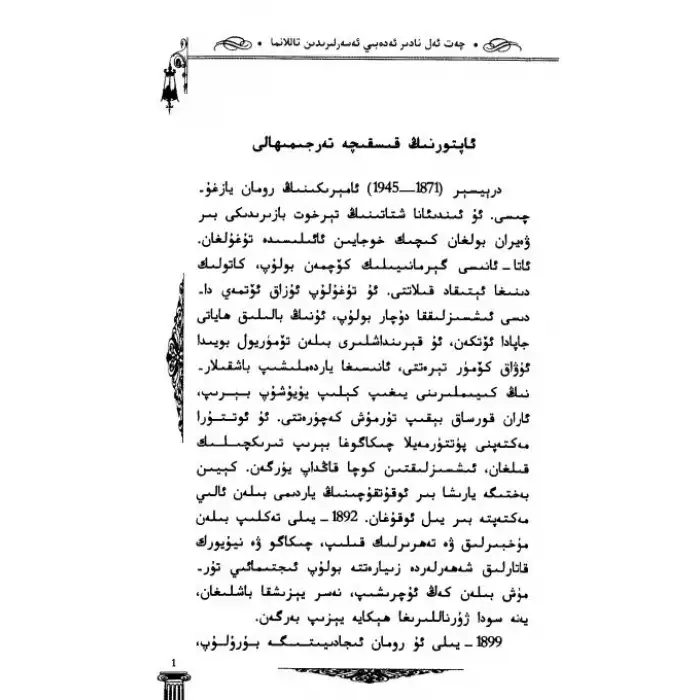 چەت ئەل نادىر ئەدەبىي ئەسەرلىرىدىن تاللانما
ئاپتورنىڭ قىسقىچە تەرجىمىھالى
درېيسېر (1871—1945) ئامېرىكىنىڭ رومان يازغۇ-
چىسى. ئۇ ئىندىئانا شتاتىنىڭ تېرخوت بازىرىدىكى بىر
ۋەيران بولغان كىچىك خوجايىن ئائىلىسىدە تۇغۇلغان.
ئاتا - ئانىسى گېرمانىيىلىك كۆچمەن بولۇپ، كاتولىك
دىنىغا ئېتىقاد قىلاتتى. ئۇ تۇغۇلۇپ ئۇزاق ئۆتمەي دا-
دىسى ئىشسىزلىققا دۇچار بولۇپ، ئۇنىڭ بالىلىق ھاياتى
جاپادا ئۆتكەن، ئۇ قېرىنداشلىرى بىلەن تۆمۈريول بويىدا
ئۇۋاق كۆمۈر تېرەتتى، ئانىسىغا ياردەملىشىپ باشقىلار-
نىڭ كىيىملىرىنى يىغىپ كېلىپ يۇيۇشۇپ بېرىپ،
ئاران قورساق بېقىپ تۇرمۇش كەچۈرەتتى. ئۇ ئوتتۇرا
مەكتەپنى پۈتتۈرمەيلا چىكاگوغا بېرىپ تىرىكچىلىك
قىلغان، ئىشسىزلىقتىن كوچا قاڭداپ يۈرگەن. كېيىن
بەختىگە يارىشا بىر ئوقۇتقۇچىنىڭ ياردىمى بىلەن ئالىي
مەكتەپتە بىر يىل ئوقۇغان. 1892 - يىلى تەكلىپ بىلەن
مۇخبىرلىق ۋە تەھرىرلىك قىلىپ، چىكاگو ۋە نيۇيورك
قاتارلىق شەھەرلەردە زىيارەتتە بولۇپ ئىجتىمائىي تۇر-
مۇش بىلەن كەڭ ئۇچرىشىپ، نەسر يېزىشقا باشلىغان،
يەنە سودا ژۇرناللىرىغا ھېكايە يېزىپ بەرگەن.
1899 - يىلى ئۇ رومان ئىجادىيىتىگە بۇرۇلۇپ،
1